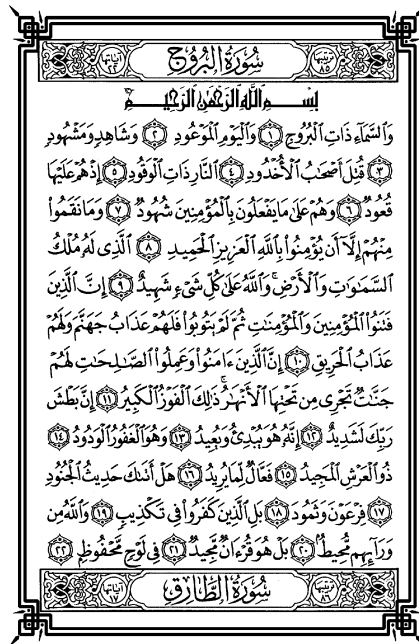 آياتها ٢٢ سُورَةُ الْبُرُوجِ ترتيبها ٨٥
بِسْمِ اللَّهِ الرَّحْمَٰنِ الرَّحِيمِ
وَالسَّمَاءِ ذَاتِ الْبُرُوجِ ١ وَالْيَوْمِ الْمَوْعُودِ ٢ وَشَاهِدٍ وَمَشْهُودٍ
٣ قُتِلَ أَصْحَابُ الْأُخْدُودِ ٤ النَّارِ ذَاتِ الْوَقُودِ ٥ إِذْ هُمْ عَلَيْهَا
قُعُودٌ ٦ وَهُمْ عَلَىٰ مَا يَفْعَلُونَ بِالْمُؤْمِنِينَ شُهُودٌ ٧ وَمَا نَقَمُوا
مِنْهُمْ إِلَّا أَن يُؤْمِنُوا بِاللَّهِ الْعَزِيزِ الْحَمِيدِ ٨ الَّذِي لَهُ مُلْكُ
السَّمَٰوَٰتِ وَالْأَرْضِ ۚ وَاللَّهُ عَلَىٰ كُلِّ شَيْءٍ شَهِيدٌ ٩ إِنَّ الَّذِينَ
فَتَنُوا الْمُؤْمِنِينَ وَالْمُؤْمِنَٰتِ ثُمَّ لَمْ يَتُوبُوا فَلَهُمْ عَذَابُ جَهَنَّمَ وَلَهُمْ
عَذَابُ الْحَرِيقِ ١٠ إِنَّ الَّذِينَ ءَامَنُوا وَعَمِلُوا الصَّٰلِحَٰتِ لَهُمْ
جَنَّٰتٌ تَجْرِي مِن تَحْتِهَا الْأَنْهَٰرُ ۚ ذَٰلِكَ الْفَوْزُ الْكَبِيرُ ١١ إِنَّ بَطْشَ
رَبِّكَ لَشَدِيدٌ ١٢ إِنَّهُ هُوَ يُبْدِئُ وَيُعِيدُ ١٣ وَهُوَ الْغَفُورُ الْوَدُودُ ١٤
ذُو الْعَرْشِ الْمَجِيدُ ١٥ فَعَّالٌ لِّمَا يُرِيدُ ١٦ هَلْ أَتَىٰكَ حَدِيثُ الْجُنُودِ
١٧ فِرْعَوْنَ وَثَمُودَ ١٨ بَلِ الَّذِينَ كَفَرُوا فِي تَكْذِيبٍ ١٩ وَاللَّهُ مِن
وَرَائِهِم مُّحِيطٌ ٢٠ بَلْ هُوَ قُرْءَانٌ مَّجِيدٌ ٢١ فِي لَوْحٍ مَّحْفُوظٍ ٢٢
آياتها ١٧ سُورَةُ الطَّارِقِ ترتيبها ٨٦